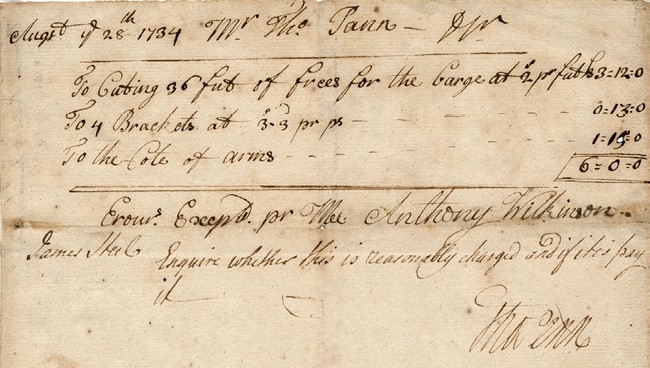 Augst ye 28th 1734 Mr Tho: Pann — Dr
To Cuting 36 fut of frees for the Barge at 2s pr fut £3=12=0
To 4 Brackets at 3s-3d pr ps - - - - - - 0=13=0
To the Cote of arms - - - - - - - 1=15=0
6=0=0
Erours Excepd. pr Mee Anthony Wilkinson
James Steel Enquire whether this is reasonably charged and if it is pay
it
Tho Penn